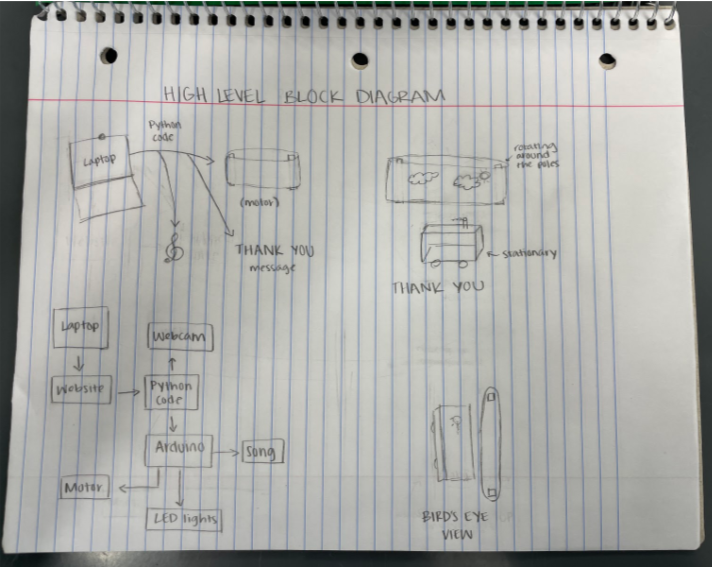 HIGH LEVEL BLOCK DIAGRAM
Python
code
Laptop
(motor)
THANK YOU
message
rotating
around
the poles
stationary
THANK YOU
Laptop
Webcam
Website
Python
code
Arduino
Song
Motor
LED lights
BIRD'S EYE
VIEW